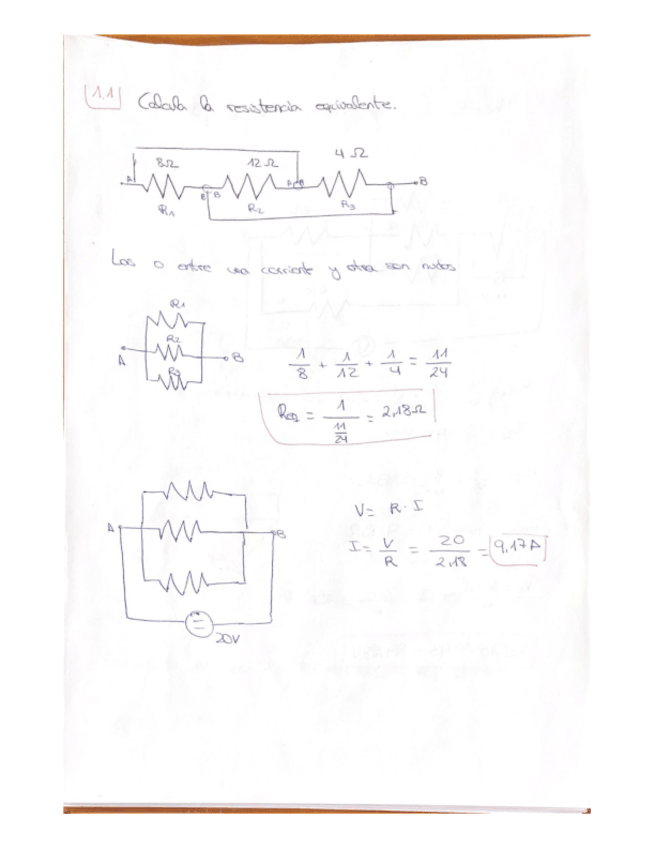 1.1 Calcula la resistencia equivalente.
8Ω 12Ω 4Ω
A B B A B
R1 R2 R3
Los o entre una corriente y otra son nudos
R1
R2
A B
R3
1/8 + 1/12 + 1/4 = 11/24
Req = 1/(11/24) = 2,18Ω
V = R · I
A B
I = V/R = 20/2,18 = 9,17A
20V